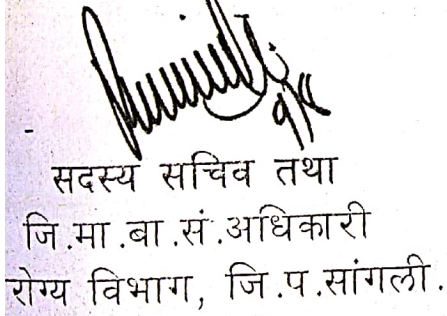 सदस्य सचिव तथा
जि.मा.बा.सं.अधिकारी
रोग्य विभाग, जि.प.सांगली.